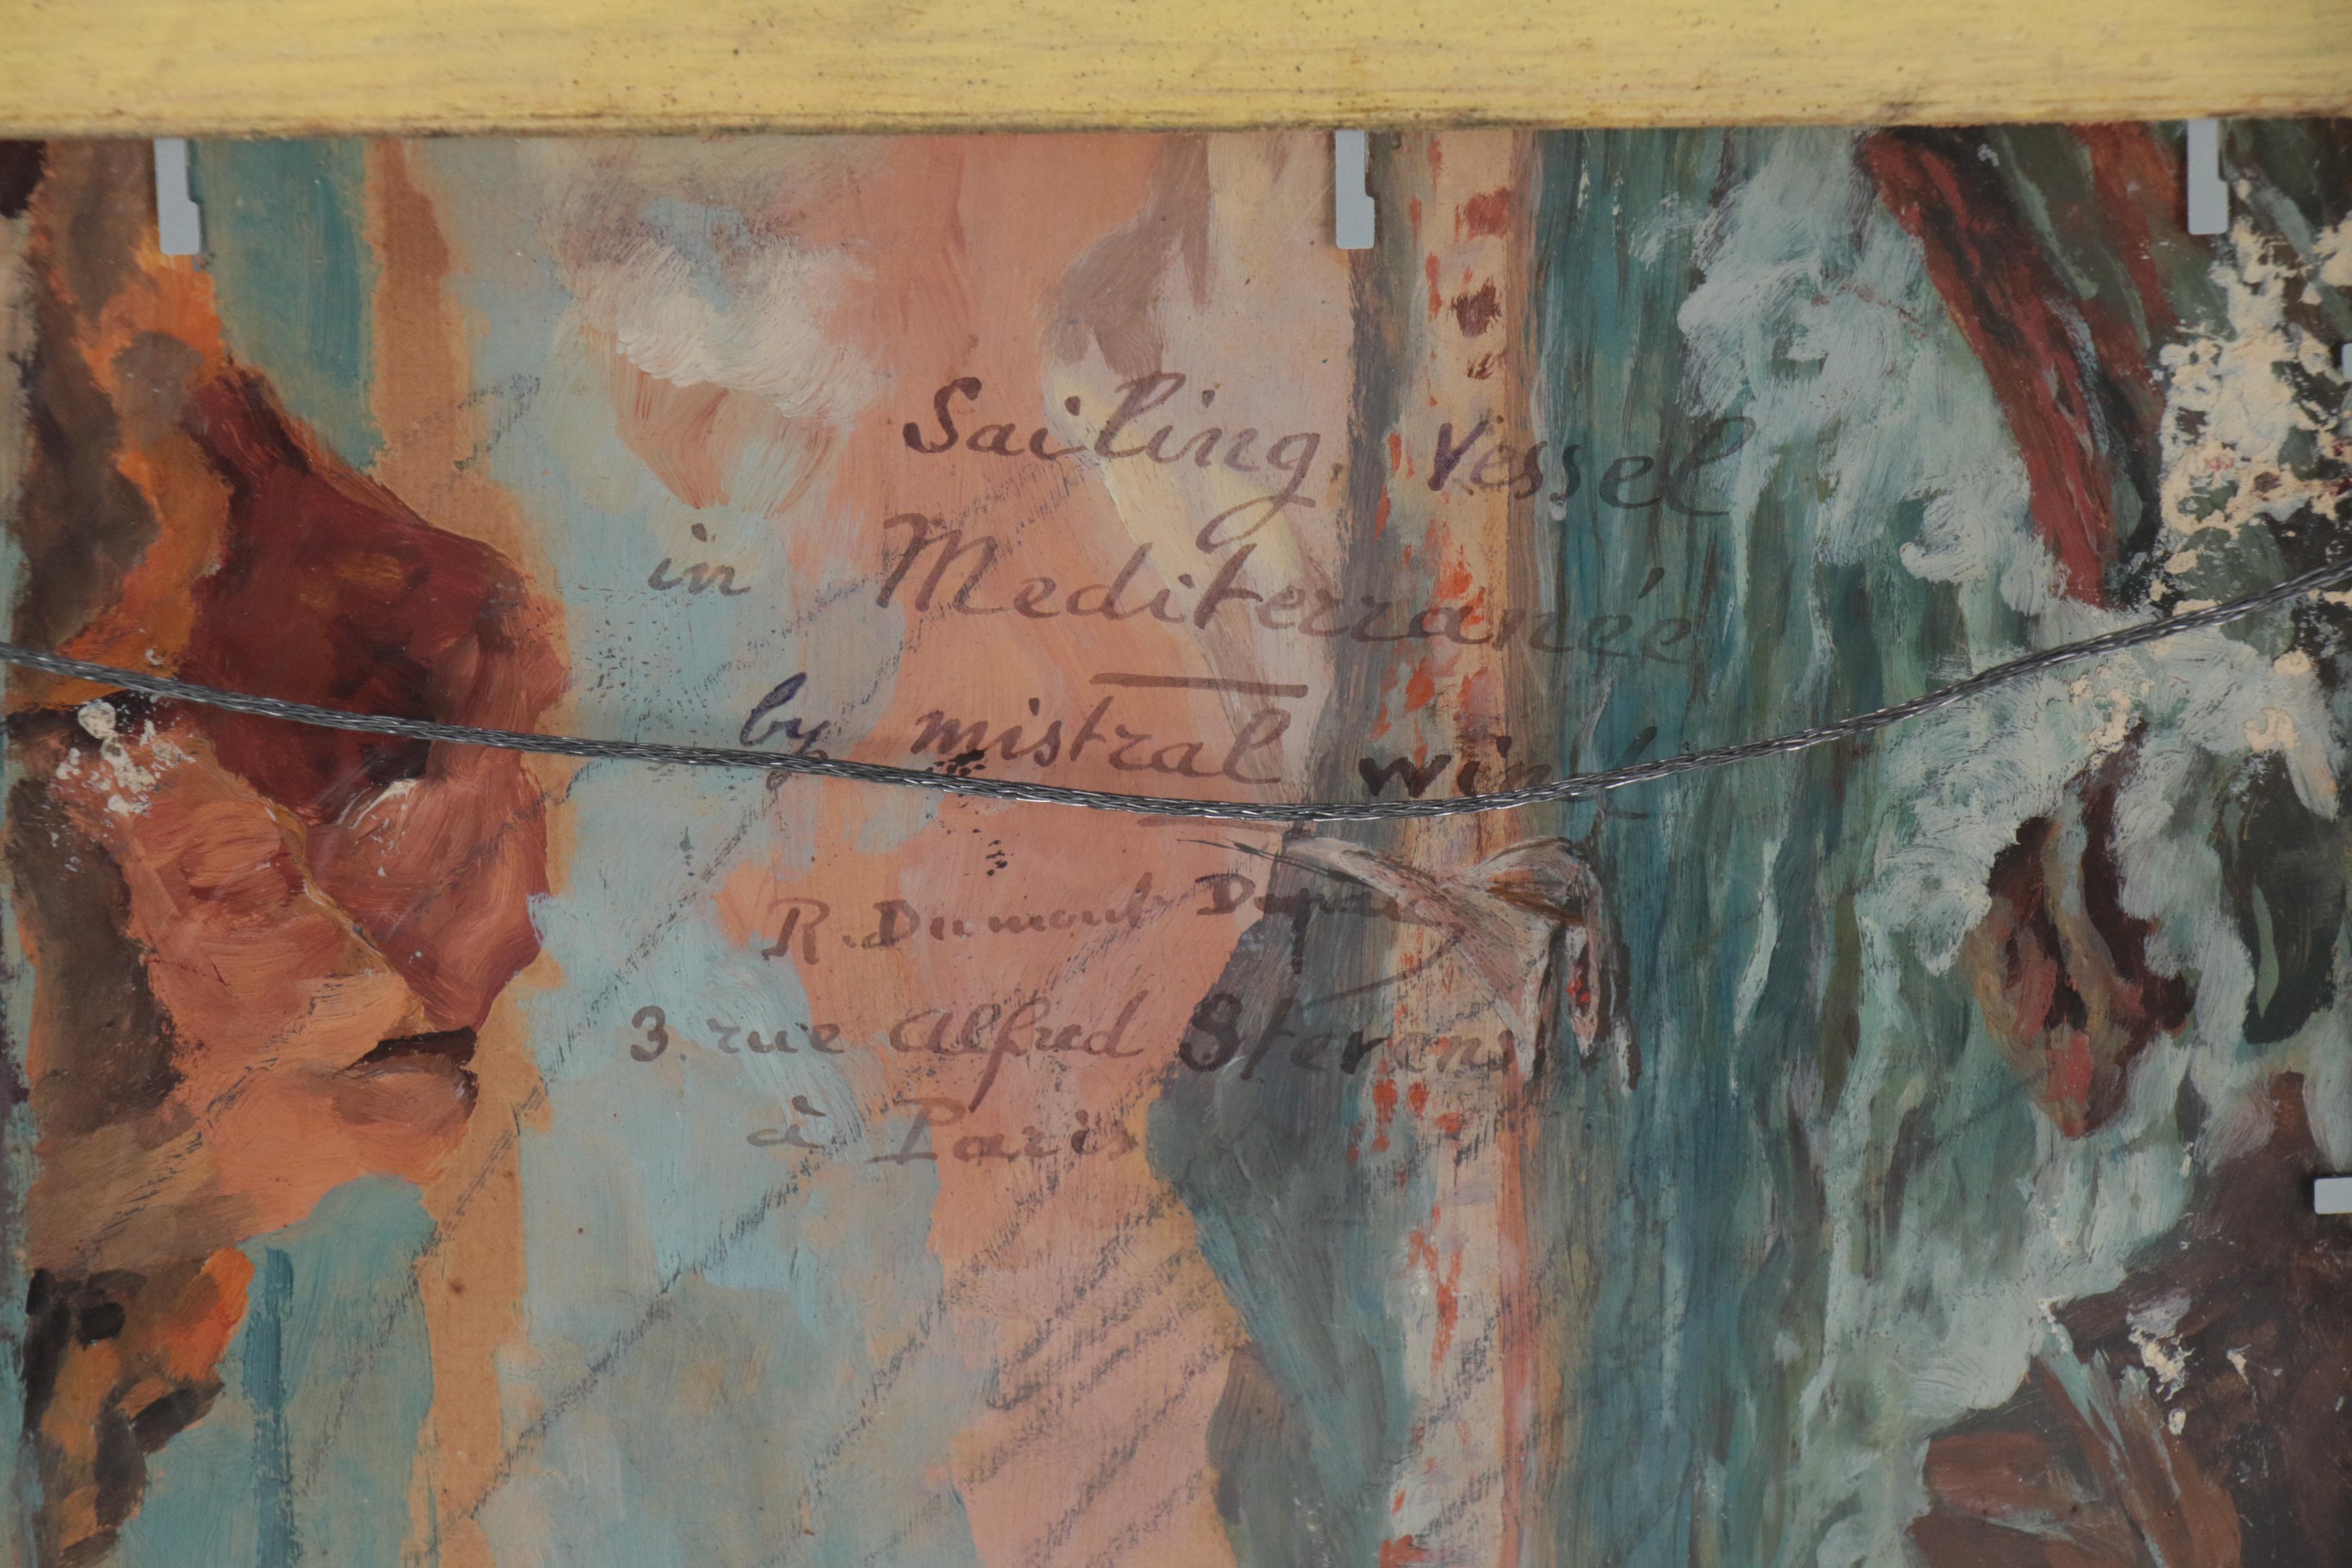 Sailing Vessel
in Mediterranée
by mistral wind
R. Dumont Duparc
3. rue Alfred Stevens
à Paris